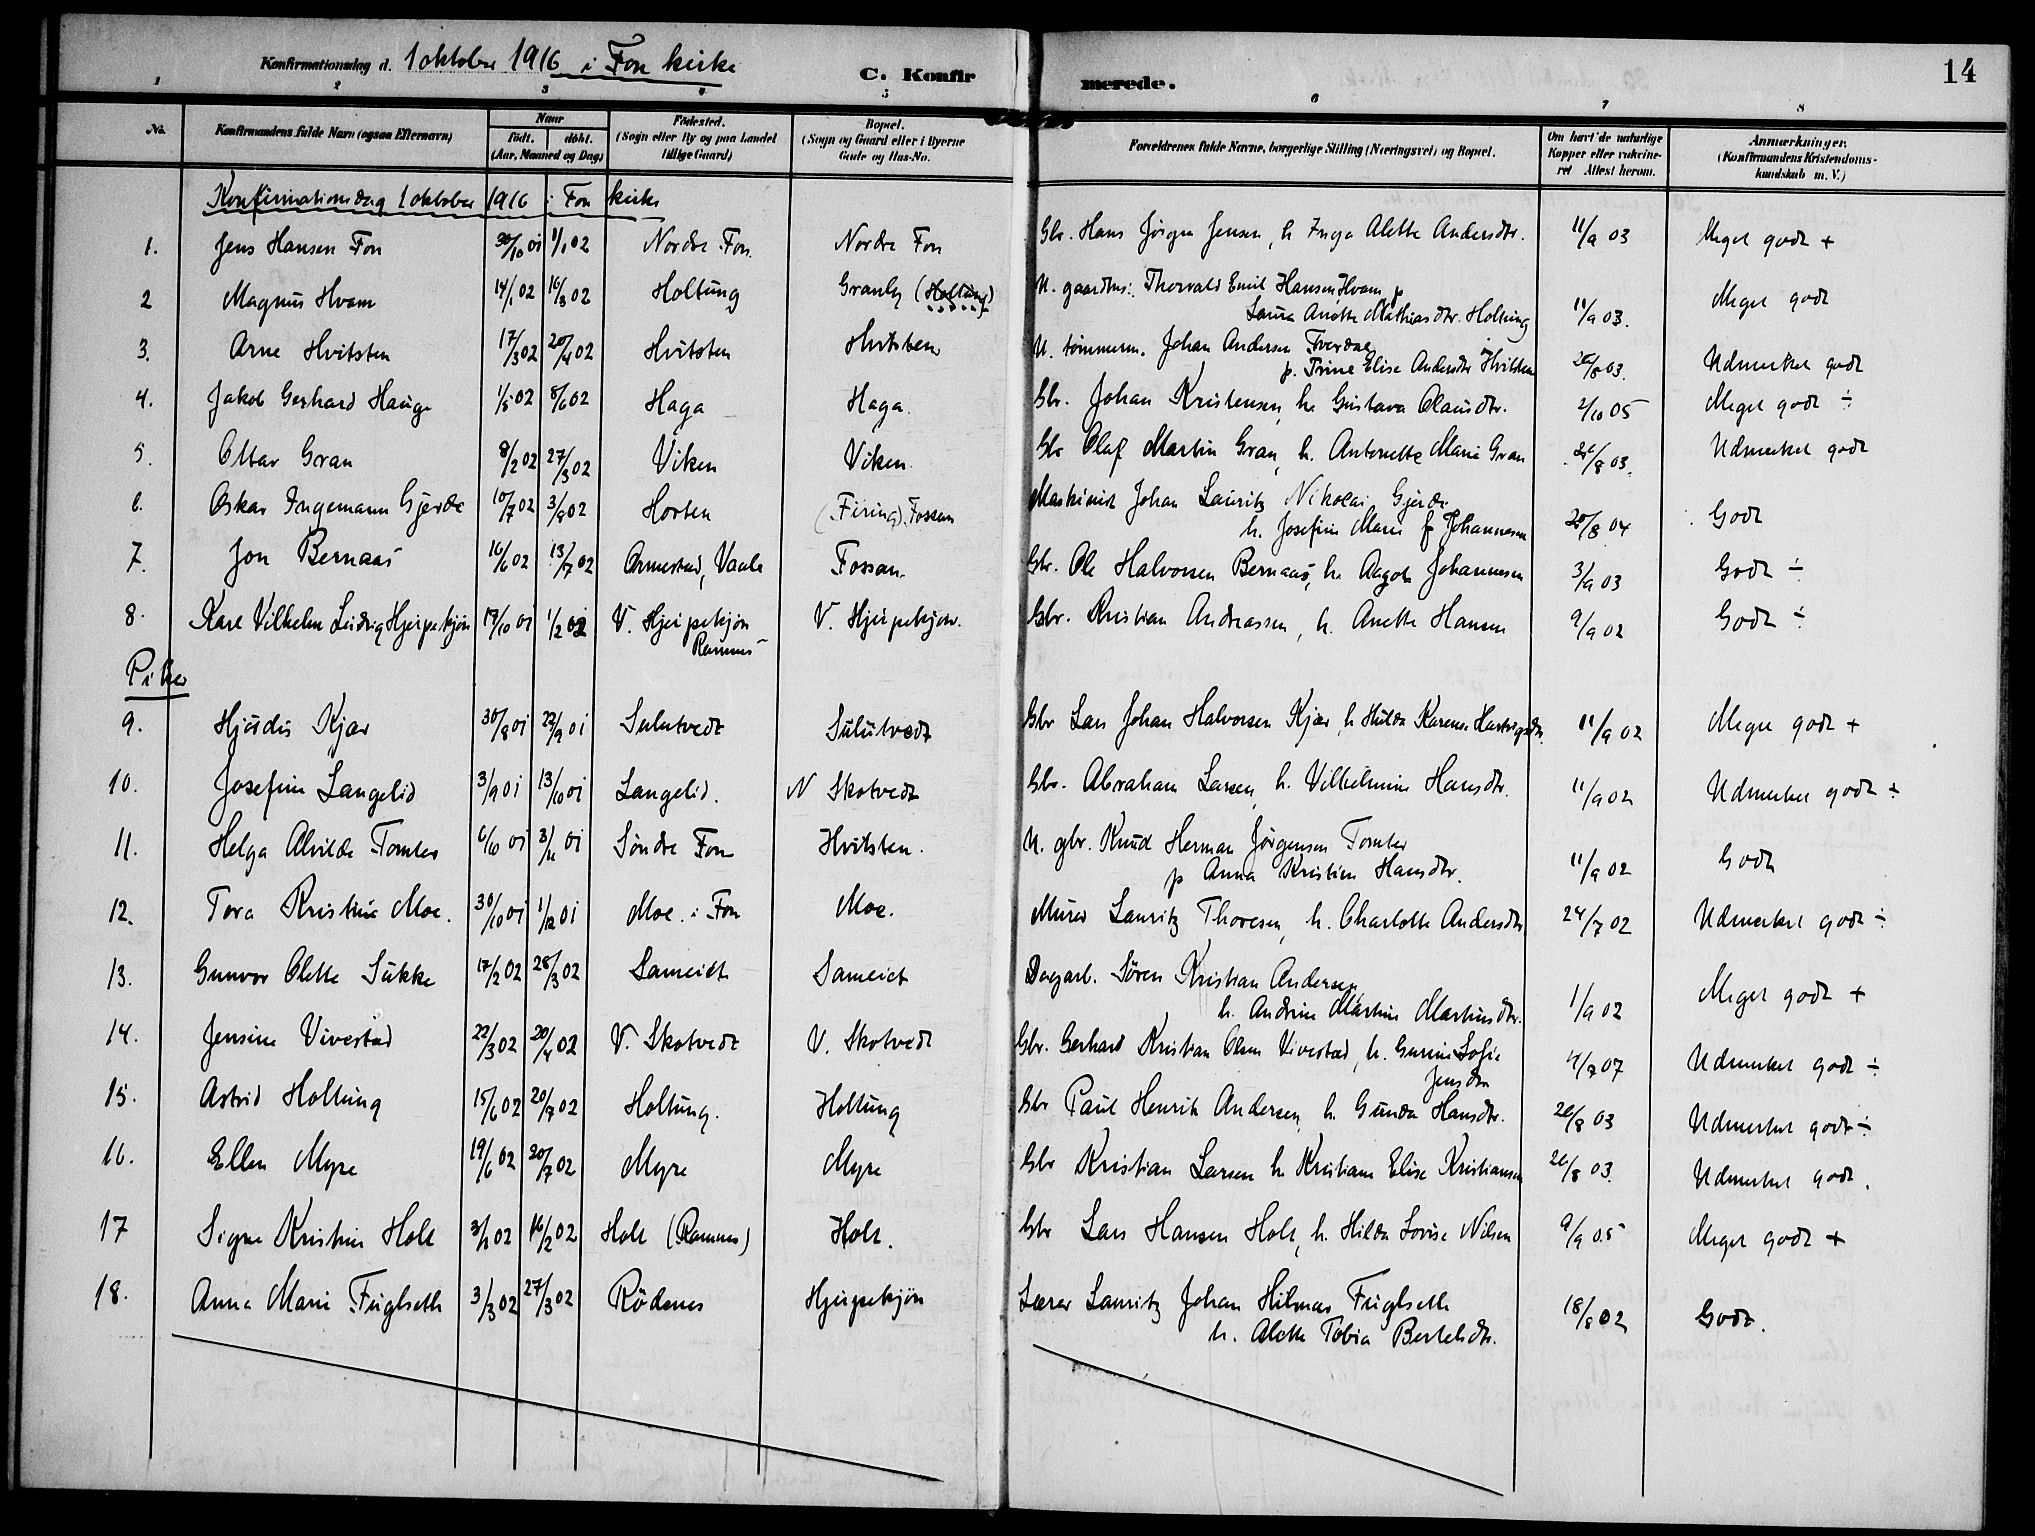 Konfirmationsdag d. 1 oktober 1916 i Fon kirke
C. Konfir
merede.
14
1 2 3 4 5 6 7 8
No. Konfirmandens fulde Navn (ogsaa Efternavn) Naar født. døbt. (Aar, Maaned og Dag) Fødested. (Sogn eller By og paa Landet tillige Gaard) Bopæl. (Sogn og Gaard eller i Byerne Gade og Hus-No. Forældrenes fulde Navne, borgerlige Stilling (Næringsvei) og Bopæl. Om havt de naturlige Kopper eller vakcineret Attest herom. Anmærkninger. (Konfirmandens Kristendomskundskab m. V.)
Konfirmationsdag 1 oktober 1916 i Fon kirke
1. Jens Hansen Fon 30/10 01 1/1 02 Nordre Fon. Nordre Fon Gbr. Hans Jörgen Jensen, h. Inga Alette Andersdtr. 11/9 03 Meget godt +
2 Magnus Hvam 14/1 02 16/3 02 Holtung Granly (Holtung) U. gaardbr: Thorvald Emil Hansen Hvam p
Laura Anette Mathiasdtr. Holtung 11/9 03. Meget godt
3. Arne Hvitsten 17/3 02 20/4 02 Hvitsten Hvitsten U. tömmerm. Johan Andersen
p. Trine Elise Andersdtr Hvitsten 26/8 03. Udmerket godt
4. Jakob Gerhard Hauge 1/5 02 8/6 02 Haga Haga. Gbr. Johan Kristensen, h. Gustava Olausdtr. 2/10 05 Meget godt ÷
5. Ottar Gran 8/2 02 27/3 02 Viken Viken. Gbr Olaf Martin Gran, h. Antonette Marie Gran 26/8 03. Udmerket godt
6. Oskar Ingemann Gjerde 10/7 02 3/8 02 Horten (Firing) Fossan Maskinist Johan Lauritz Nikolai Gjerde
h. Josefine Marie f Johannesen 25/8 04 Godt
7. Jon Bernaas 16/6 02 13/7 02 Ormestad, Vaale Fossan. Gbr. Ole Halvorsen Bernaas, h. Aagot Johannesen 3/9 03 Godt ÷
8. Karl Vilhelm Leidvig Hjerpekjön 17/10 01 1/2 02 V. Hjerpekjön V. Hjerpekjön. Gbr. Kristian Andreassen, h. Anette Hansen 9/9 02 Godt ÷
Ramnes
Piker
9. Hjördis Kjær 30/8 01 22/9 01 Sulutvedt Sulutvedt Gbr Lars Johan Halvorsen Kjær, h. Hilda Karene Hartvigsdtr. 11/9 02 Meget godt +
10. Josefine Langelid 3/9 01 13/10 01 Langelid. N Skotvedt Gbr. Abraham Larsen, h. Vilhelmine Hansdtr. 11/9 02 Udmerket godt ÷
11. Helga Alvilde Tomter 6/10 01 3/11 01 Söndre Fon Hvitsten. U. gbr. Knud Herman Jörgensen Tomter
p Anna Kristine Hansdtr. 11/9 02 Godt
12. Tora Kristine Moe. 30/10 01 1/12 01 Moe i Fon Moe. Murer Lauritz Thoresen, h. Charlotte Andersdtr 24/7 02 Udmerket godt ÷
13. Gunvor Olette Sukke 17/2 02 28/3 02 Sameiet Sameiet Dagarb. Sören Kristian Andersen
h. Andrine Martine Martinsdtr. 1/9 02 Meget godt +
14. Jensine Vivestad 22/3 02 20/4 02 V. Skotvedt V. Skotvedt Gbr. Gerhard Kristian Olsen Vivestad, h. Gurine Sofie
Jensdtr 4/9 07 Udmerket godt ÷
15. Astrid Holtung 15/6 02 20/7 02 Holtung. Holtung Gbr Paul Henrik Andersen, h. Gunda Hansdtr. 26/8 03 Udmerket godt ÷
16. Ellen Myre 19/6 02 20/7 02 Myre Myre Gbr Kristian Larsen h Kristiane Elise Kristiansen 26/8 03. Udmerket godt.
17 Signe Kristine Holt 3/1 02 16/2 02 Holt (Ramnes) Holt. Gbr Lars Hansen Holt, h. Hilda Lovise Nilsen 9/9 05 Meget godt +
18. Anna Marie Fuglseth 3/3 02 27/3 02 Rödenes Hjerpekjön Lærer Lauritz Johan Hilmar Fuglseth
h. Alette Tobia Bertelsdtr. 18/8 02 Godt.